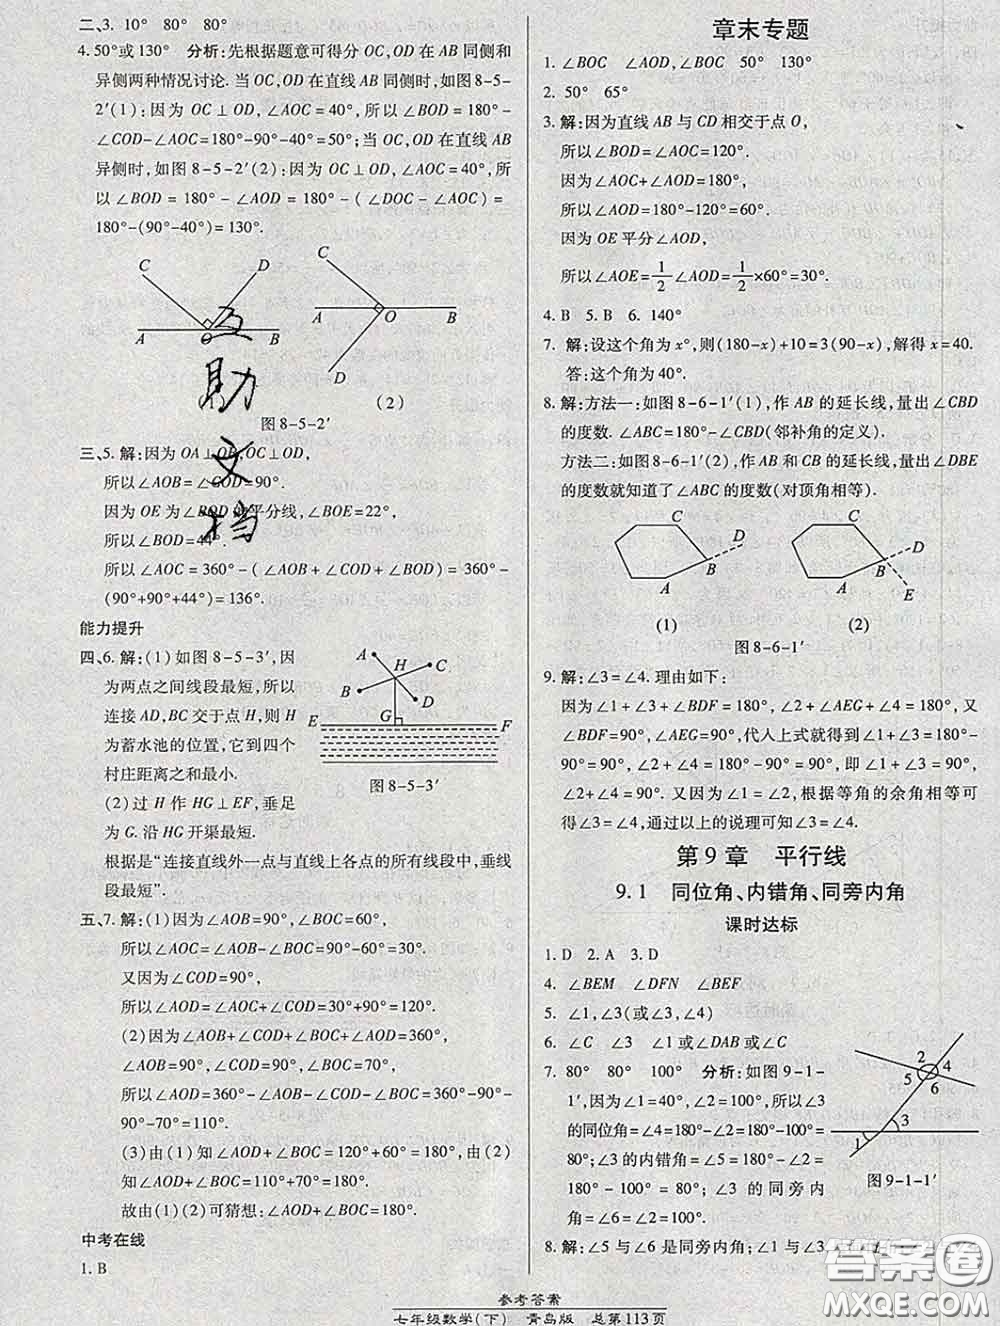 二、3. 10°　80°　80°
4. 50°或 130°　分析:先根据题意可得分 OC,OD 在 AB 同侧和
异侧两种情况讨论. 当 OC,OD 在直线 AB 同侧时,如图 8-5-
2′(1):因为 OC⊥OD,∠AOC=40°,所以∠BOD=180°-
∠COD-∠AOC=180°-90°-40°=50°;当 OC,OD 在直线 AB
异侧时,如图 8-5-2′(2):因为 OC⊥OD,∠AOC=40°,所
以∠BOD=180°-∠AOD=180°-(∠DOC-∠AOC)=
180°-(90°-40°)=130°.
C D A O B
C A O B D
(1) (2)
图 8-5-2′
互助文档
三、5. 解:因为 OA⊥OB,OC⊥OD,
所以∠AOB=∠COD=90°.
因为 OE 为∠BOD 的平分线,∠BOE=22°,
所以∠BOD=44°.
所以∠AOC=360°-(∠AOB+∠COD+∠BOD)=360°-
(90°+90°+44°)=136°.
能力提升
四、6. 解:(1)如图 8-5-3′,因
为两点之间线段最短,所以
连接 AD,BC 交于点 H,则 H
为蓄水池的位置,它到四个
村庄距离之和最小.
(2)过 H 作 HG⊥EF,垂足
为 G. 沿 HG 开渠最短.
A H C B D G E F
图 8-5-3′
根据是“连接直线外一点与直线上各点的所有线段中,垂线
段最短”.
五、7. 解:(1)因为∠AOB=90°,∠BOC=60°,
所以∠AOC=∠AOB-∠BOC=90°-60°=30°.
又因为∠COD=90°,
所以∠AOD=∠AOC+∠COD=30°+90°=120°.
(2)因为∠AOB+∠COD+∠BOC+∠AOD=360°,
∠AOB=90°,∠COD=90°,∠BOC=70°,
所以∠AOD=360°-∠AOB-∠COD-∠BOC=360°-90°
-90°-70°=110°.
(3)由(1)知∠AOD+∠BOC=120°+60°=180°,由(2)
知∠AOD+∠BOC=110°+70°=180°.
故由(1)(2)可猜想:∠AOD+∠BOC=180°.
中考在线
1. B
章末专题
1. ∠BOC　∠AOD,∠BOC　50°　130°
2. 50°　65°
3. 解:因为直线 AB 与 CD 相交于点 O,
所以∠BOD=∠AOC=120°.
因为∠AOC+∠AOD=180°,
所以∠AOD=180°-120°=60°.
因为 OE 平分∠AOD,
所以∠AOE=1/2∠AOD=1/2×60°=30°.
4. B　5. B　6. 140°
7. 解:设这个角为 x°,则(180-x)+10=3(90-x),解得 x=40.
答:这个角为 40°.
8. 解:方法一:如图 8-6-1′(1),作 AB 的延长线,量出∠CBD
的度数. ∠ABC=180°-∠CBD(邻补角的定义).
方法二:如图 8-6-1′(2),作 AB 和 CB 的延长线,量出∠DBE
的度数就知道了∠ABC 的度数(对顶角相等).
C D B A
C D B A E
(1) (2)
图 8-6-1′
9. 解:∠3=∠4. 理由如下:
因为∠1+∠3+∠BDF=180°,∠2+∠AEG+∠4=180°,又
∠BDF=90°,∠AEG=90°,代人上式就得到∠1+∠3=180°
-90°=90°,∠2+∠4=180°-90°=90°,即∠1+∠3=90°,
∠2+∠4=90°. 又因为∠1=∠2,根据等角的余角相等可
得∠3=∠4,通过以上的说理可知∠3=∠4.
第 9 章　平行线
9.1　同位角、内错角、同旁内角
课时达标
1. D　2. A　3. D
4. ∠BEM　∠DFN　∠BEF
5. ∠1,∠3(或∠3,∠4)
6. ∠C　∠3　∠1 或∠DAB 或∠C
7. 80°　80°　100°　分析:如图 9-1-
1′,因为∠1=∠2=100°,所以∠3
的同位角=∠4=180°-∠2=180°-100°=
80°;∠3 的内错角=∠5=180°-∠2=
180°-100°=80°;∠3 的同旁内
角=∠6=∠2=100°.
2 4 5 6 3 1
图 9-1-1′
8. 解:∠5 与∠6 是同旁内角;
答案圈
MXQE.COM
参考答案
七年级数学(下)　青岛版　总第113页